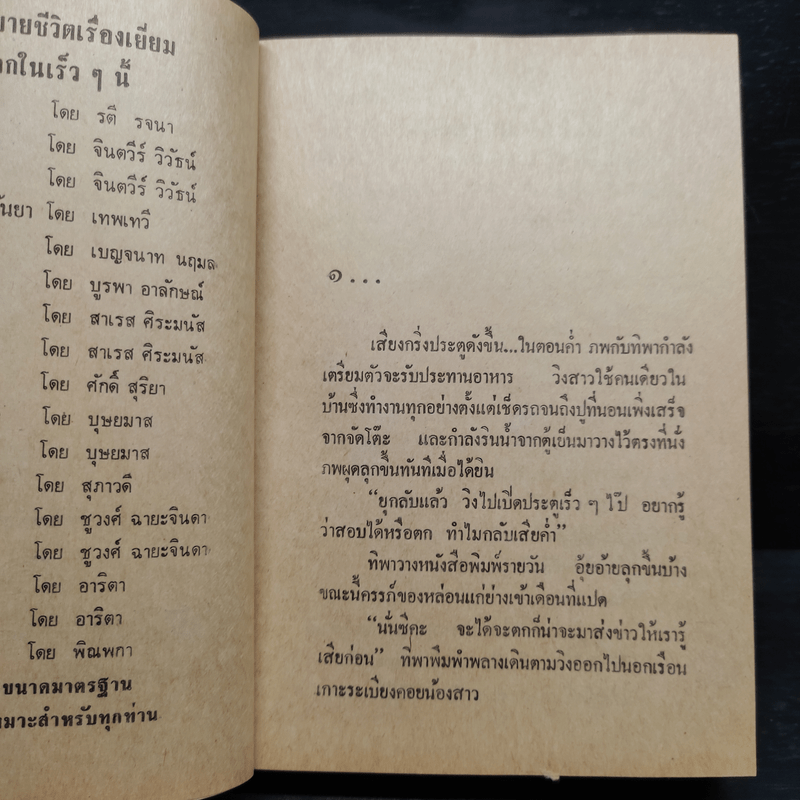 ายชีวิตเรื่องเยี่ยม
กในเร็ว ๆ นี้
โดย รตี รจนา
โดย จินตวีร์ วิวัธน์
โดย จินตวีร์ วิวัธน์
ันยา โดย เทพเทวี
โดย เบญจนาท นฤมล
โดย บูรพา อาลักษณ์
โดย สาเรส ศิระมนัส
โดย สาเรส ศิระมนัส
โดย ศักดิ์ สุริยา
โดย บุษยมาส
โดย บุษยมาส
โดย สุภาวดี
โดย ชูวงศ์ ฉายะจินดา
โดย ชูวงศ์ ฉายะจินดา
โดย อาริตา
โดย อาริตา
โดย พิณพกา
ขนาดมาตรฐาน
หมาะสำหรับทุกท่าน
๑...
เสียงกริ่งประตูดังขึ้น...ในตอนค่ำ ภพกับทิพากำลัง
เตรียมตัวจะรับประทานอาหาร วิงสาวใช้คนเดียวใน
บ้านซึ่งทำงานทุกอย่างตั้งแต่เช็ดรถจนถึงปูที่นอนเพิ่งเสร็จ
จากจัดโต๊ะ และกำลังรินน้ำจากตู้เย็นมาวางไว้ตรงที่นั่ง
ภพผุดลุกขึ้นทันทีเมื่อได้ยิน
“ยุกลับแล้ว วิงไปเปิดประตูเร็ว ๆ ไป๊ อยากรู้
ว่าสอบได้หรือตก ทำไมกลับเสียค่ำ”
ทิพาวางหนังสือพิมพ์รายวัน อุ้ยอ้ายลุกขึ้นบ้าง
ขณะนี้ครรภ์ของหล่อนแก่ย่างเข้าเดือนที่แปด
“นั่นซีคะ จะได้จะตกก็น่าจะมาส่งข่าวให้เรารู้
เสียก่อน” ทิพาพึมพำพลางเดินตามวิงออกไปนอกเรือน
เกาะระเบียงคอยน้องสาว